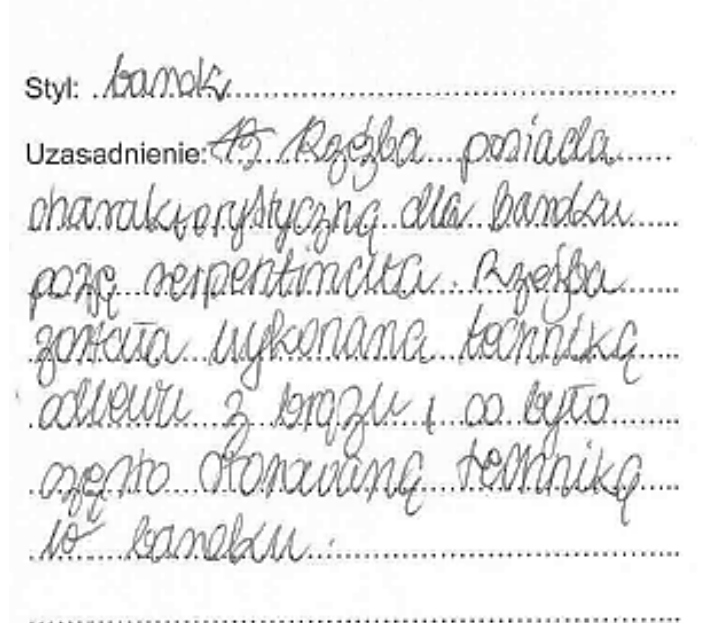 Styl: barok
Uzasadnienie: Rzeźba posiada
charakterystyczną dla baroku
pozę serpentinata. Rzeźba
została wykonana techniką
odlewu z brązu, co było
często stosowaną techniką
w baroku.